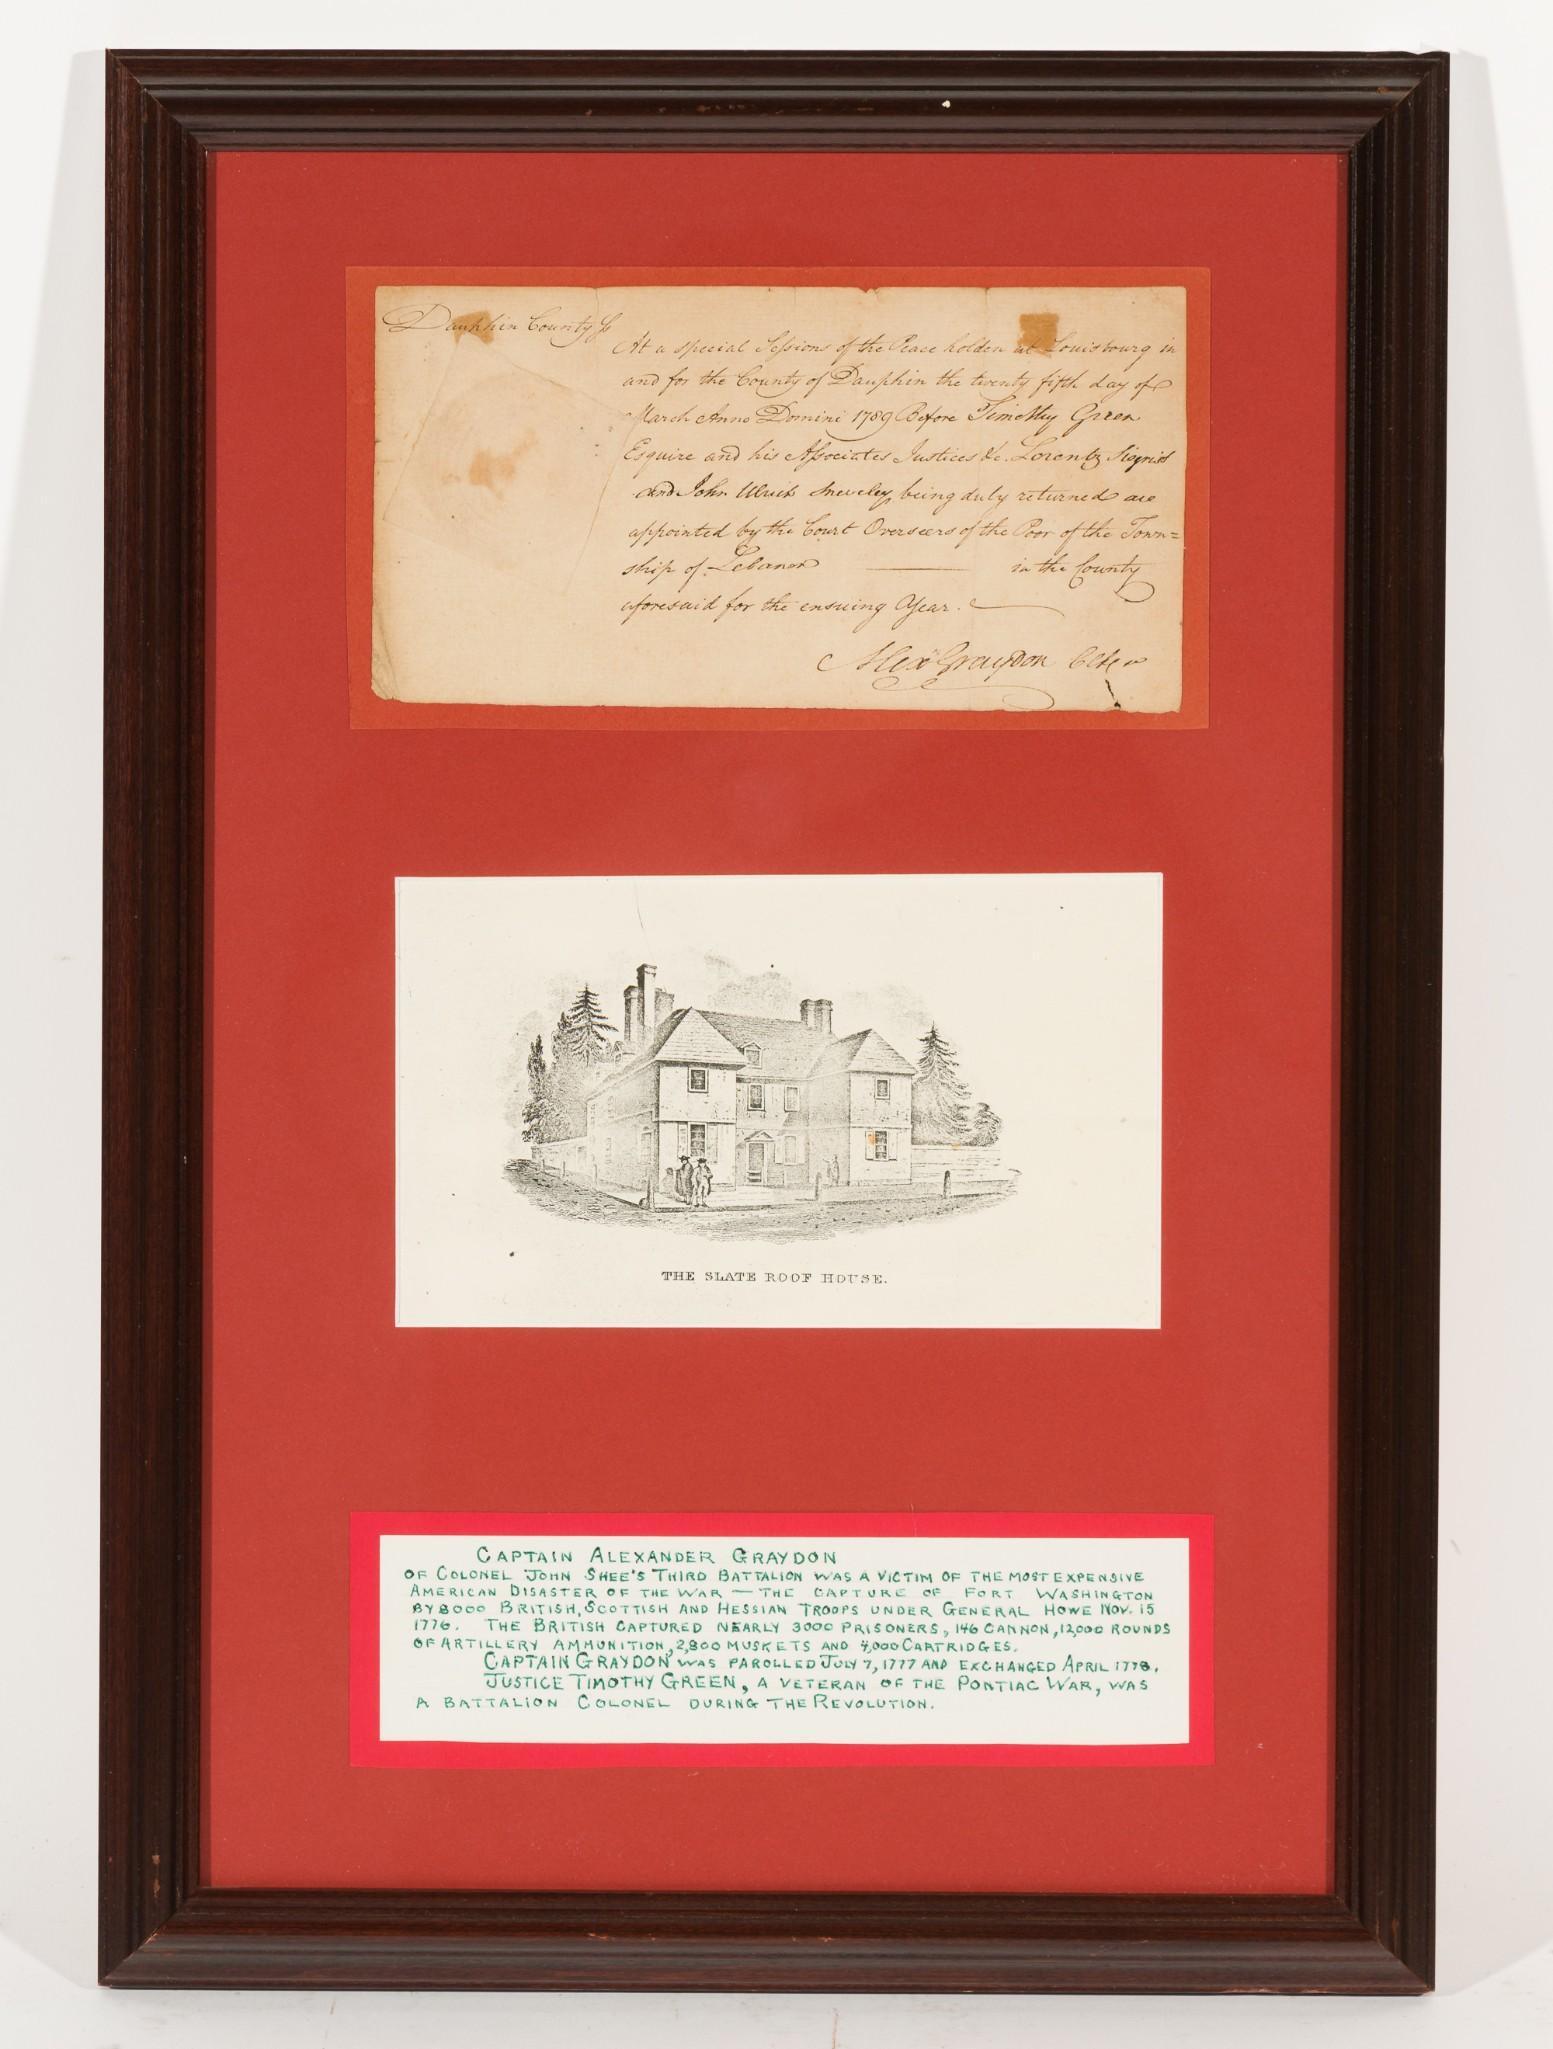 Dauphin County Ss
At a special Sessions of the Peace holden at Louisbourg in
and for the County of Dauphin the twenty fifth day of
March Anno Domini 1789 Before Timothy Green
Esquire and his Associates Justices &c. Lorentz Sigrist
and John being duly returned are
appointed by the Court Overseers of the Poor of the Town=
ship of Lebanon in the County
aforesaid for the ensuing Year.
Alexr Graydon Clk
THE SLATE ROOF HOUSE.
CAPTAIN ALEXANDER GRAYDON
OF COLONEL JOHN SHEE'S THIRD BATTALION WAS A VICTIM OF THE MOST EXPENSIVE
AMERICAN DISASTER OF THE WAR — THE CAPTURE OF FORT WASHINGTON
BY 8000 BRITISH, SCOTTISH AND HESSIAN TROOPS UNDER GENERAL HOWE NOV. 15
1776. THE BRITISH CAPTURED NEARLY 3000 PRISONERS, 146 CANNON, 12,000 ROUNDS
OF ARTILLERY AMMUNITION, 2,800 MUSKETS AND 4,000 CARTRIDGES.
CAPTAIN GRAYDON WAS PAROLLED JULY 7, 1777 AND EXCHANGED APRIL 1778.
JUSTICE TIMOTHY GREEN, A VETERAN OF THE PONTIAC WAR, WAS
A BATTALION COLONEL DURING THE REVOLUTION.